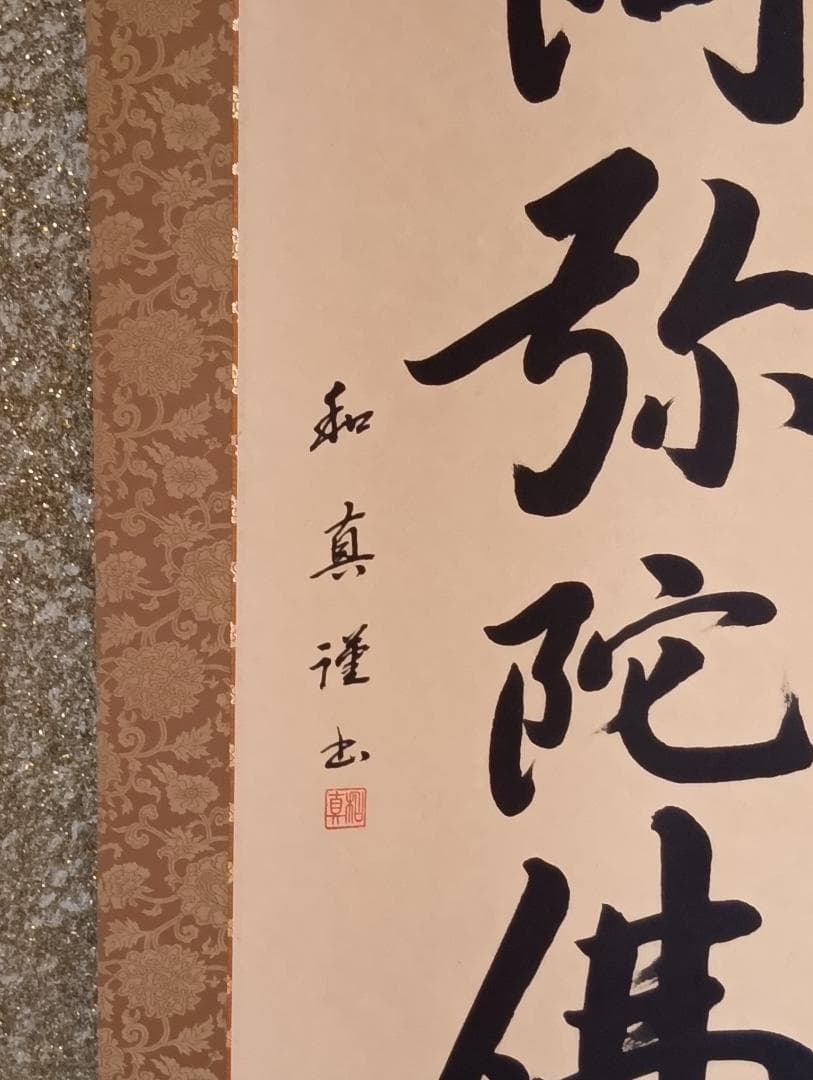 阿弥陀佛
和真謹书
和真